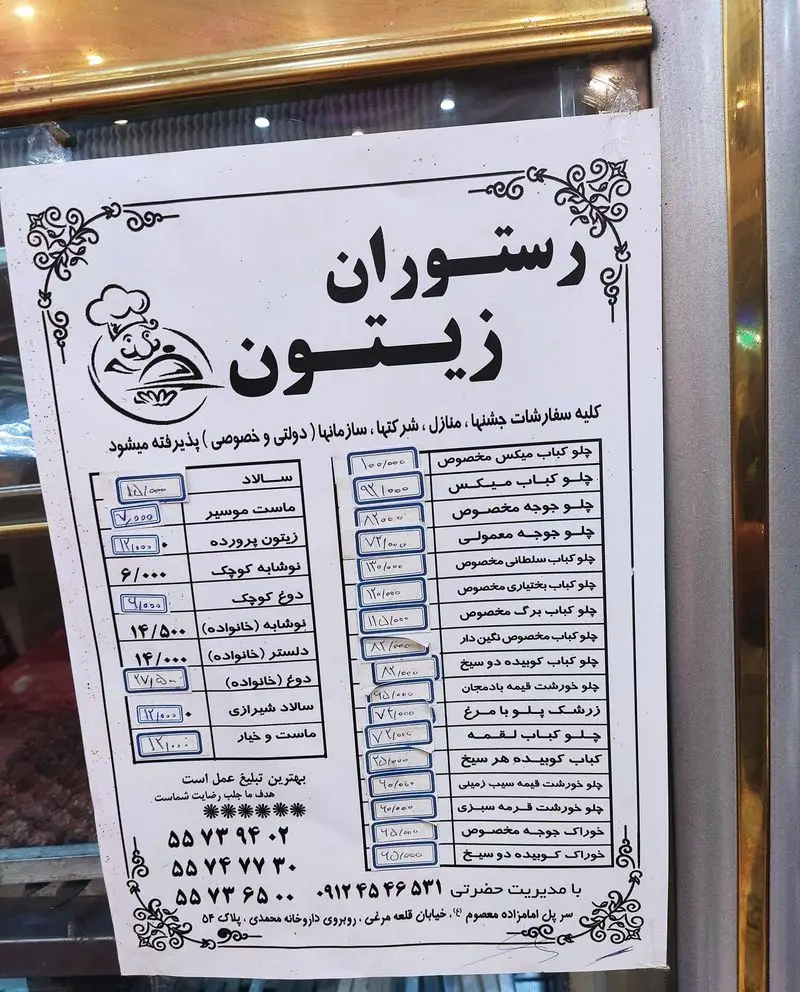 رستوران
زیتون
کلیه سفارشات جشنها ، منازل ، شرکتها ، سازمانها ( دولتی و خصوصی ) پذیرفته میشود
چلو کباب میکس مخصوص ۱۰۰/۰۰۰
چلو کباب میکس ۹۲/۰۰۰
چلو جوجه مخصوص ۸۲۰۰۰
چلو جوجه معمولی ۷۲/۰۰۰
چلو کباب سلطانی مخصوص ۱۳۰/۰۰۰
چلو کباب بختیاری مخصوص ۱۲۰/۰۰۰
چلو کباب برگ مخصوص ۱۱۵/۰۰۰
چلو کباب مخصوص نگین دار ۸۲/۰۰۰
چلو کباب کوبیده دو سیخ ۸۲/۰۰۰
چلو خورشت قیمه بادمجان ۶۵/۰۰۰
زرشک پلو با مرغ ۷۲/۰۰۰
چلو کباب لقمه ۷۲/۰۰۰
کباب کوبیده هر سیخ ۲۵/۰۰۰
چلو خورشت قیمه سیب زمینی ۶۰/۰۰۰
چلو خورشت قرمه سبزی ۶۰/۰۰۰
خوراک جوجه مخصوص ۶۵/۰۰۰
خوراک کوبیده دو سیخ ۶۵/۰۰۰
سالاد ۱۵/۰۰۰
ماست موسیر ۷/۰۰۰
زیتون پرورده ۱۲/۰۰۰
نوشابه کوچک ۶/۰۰۰
دوغ کوچک ۶/۰۰۰
نوشابه (خانواده) ۱۴/۵۰۰
دلستر (خانواده) ۱۴/۰۰۰
دوغ (خانواده)
سالاد شیرازی ۱۲/۰۰۰
ماست و خیار ۱۲/۰۰۰
بهترین تبلیغ عمل است
هدف ما جلب رضایت شماست
******
۵۵ ۷۳ ۹۴ ۰۲
۵۵ ۷۴ ۷۷ ۳۰
۵۵ ۷۳ ۶۵ ۰۰
با مدیریت حضرتی ۰۹۱۲ ۴۵ ۴۶ ۵۳۱
سر پل امامزاده معصوم (ع)، خیابان قلعه مرغی ، روبروی داروخانه محمدی ، پلاک ۵۴